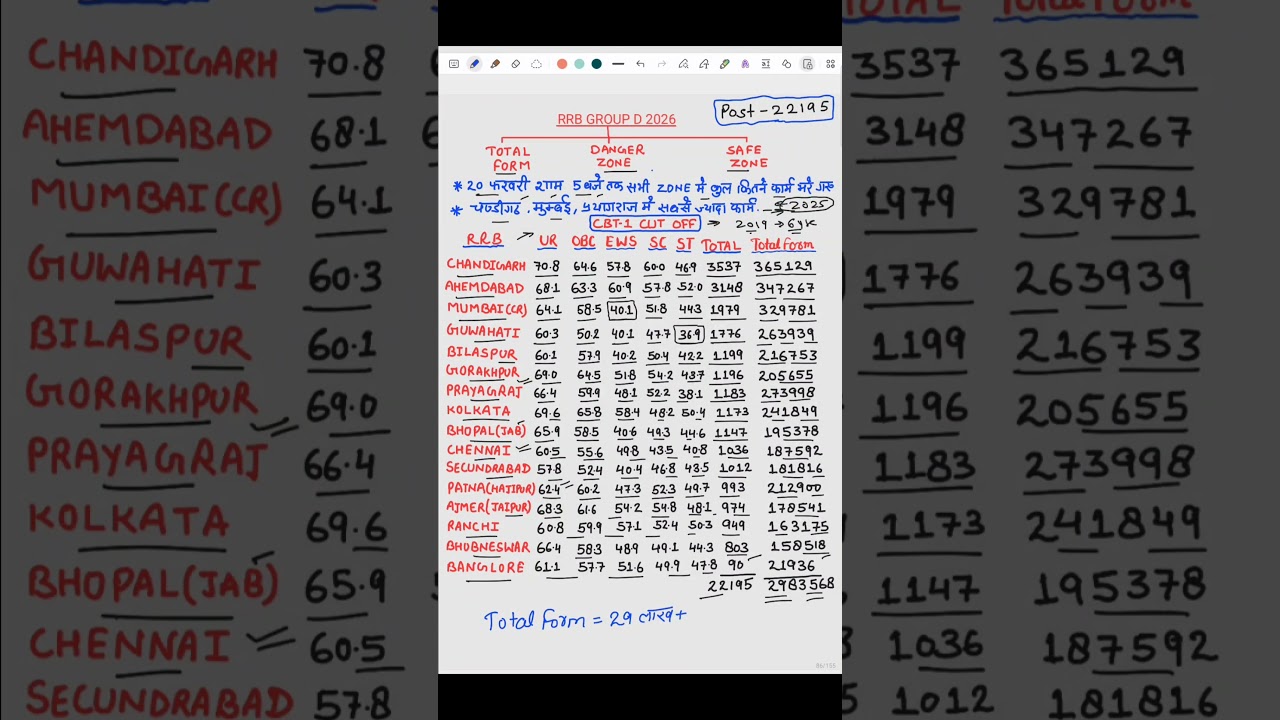 Post - 22195
RRB GROUP D 2026
TOTAL FORM DANGER ZONE SAFE ZONE
* 20 फरवरी शाम 5 बजे तक सभी ZONE में कुल कितने फार्म भरे गए
* चण्डीगढ, मुम्बई, प्रयागराज में सबसे ज्यादा फार्म. → 2025
CBT-1 CUT OFF → 2019 → 6
RRB → UR OBC EWS SC ST TOTAL Total form
CHANDIGARH 70.8 64.6 57.8 60.0 46.9 3537 365129
AHEMDABAD 68.1 63.3 60.9 57.8 52.0 3148 347267
MUMBAI(CR) 64.1 58.5 40.1 51.8 44.3 1979 329781
GUWAHATI 60.3 50.2 40.1 47.7 36.9 1776 263939
BILASPUR 60.1 57.9 40.2 50.4 42.2 1199 216753
GORAKHPUR 69.0 64.5 51.8 54.2 43.7 1196 205655
PRAYAGRAJ 66.4 59.9 48.1 52.2 38.1 1183 273998
KOLKATA 69.6 65.8 58.4 48.2 50.4 1173 241849
BHOPAL(JAB) 65.9 58.5 40.6 49.3 44.6 1147 195378
CHENNAI 60.5 55.6 49.8 43.5 40.8 1036 187592
SECUNDRABAD 57.8 52.4 40.4 46.8 43.5 1012 181816
PATNA(HAJIPUR) 62.4 60.2 47.3 52.3 49.7 993 212900
AJMER(JAIPUR) 68.3 61.6 54.2 54.8 48.1 974 178541
RANCHI 60.8 59.9 57.1 52.4 50.3 949 163175
BHOBNESWAR 66.4 58.3 48.9 49.1 44.3 803 158518
BANGLORE 61.1 57.7 51.6 49.9 47.8 90 21936
22195 2983568
Total form = 29 लाख+
86/155